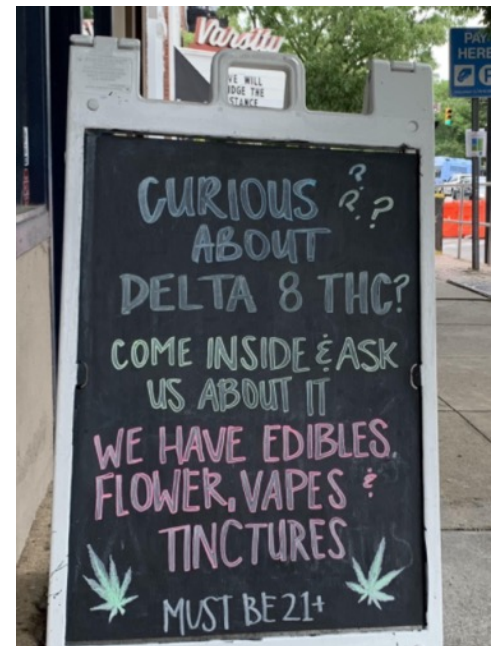 Varsity
VE WILL
IDGE THE
STANCE
PAY
HERE
P
CURIOUS ???
ABOUT
DELTA 8 THC?
COME INSIDE & ASK
US ABOUT IT
WE HAVE EDIBLES,
FLOWER, VAPES &
TINCTURES
MUST BE 21+